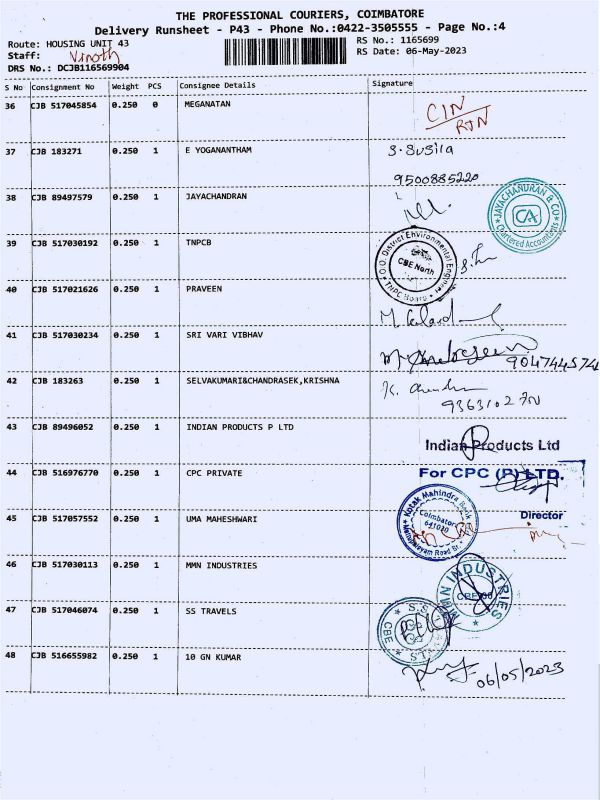 THE PROFESSIONAL COURIERS, COIMBATORE
Delivery Runsheet - P43 - Phone No.:0422-3505555 - Page No.:4
Route: HOUSING UNIT 43
RS No.: 1165699
Staff: Vinoth
RS Date: 06-May-2023
DRS No.: DCJB116569904
S No Consignment No Weight PCS Consignee Details Signature
36 CJB 517045854 0.250 0 MEGANATAN
CIN
RTN
37 CJB 183271 0.250 1 E YOGANANTHAM S. Susila
9500885220
38 CJB 89497579 0.250 1 JAYACHANDRAN
JAYACHANDRAN & CO
CA
Chartered Accountants
39 CJB 517030192 0.250 1 TNPCB
O.O. District Environmental Engineer
CBE North
TNPC Board
40 CJB 517021626 0.250 1 PRAVEEN
41 CJB 517030234 0.250 1 SRI VARI VIBHAV
42 CJB 183263 0.250 1 SELVAKUMARI&CHANDRASEK,KRISHNA
43 CJB 89496052 0.250 1 INDIAN PRODUCTS P LTD
Indian Products Ltd
44 CJB 516976770 0.250 1 CPC PRIVATE
For CPC (P) LTD.
Director
45 CJB 517057552 0.250 1 UMA MAHESHWARI
Kotak Mahindra Bank
Coimbatore
641030
46 CJB 517030113 0.250 1 MMN INDUSTRIES
INDUSTRIES
47 CJB 517046074 0.250 1 SS TRAVELS
CBE
48 CJB 516655982 0.250 1 10 GN KUMAR
06/05/2023